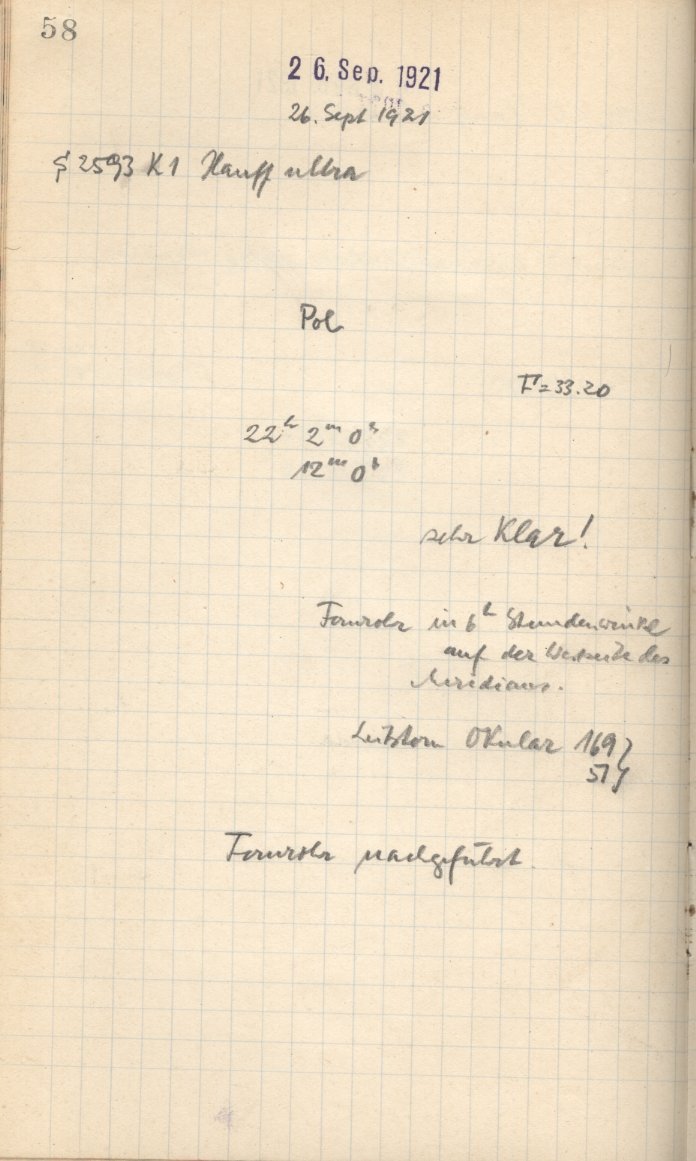 58
26. Sep. 1921
26. Sept 1921
2593 K1 Hauff ultra
Pol
F = 33.20
22h 2m 0s
12m 0s
sehr Klar!
Fernrohr in 6h Stundenwinkel
auf der Westseite des
Meridians.
Leitstern Okular 169
51
Fernrohr nachgeführt.